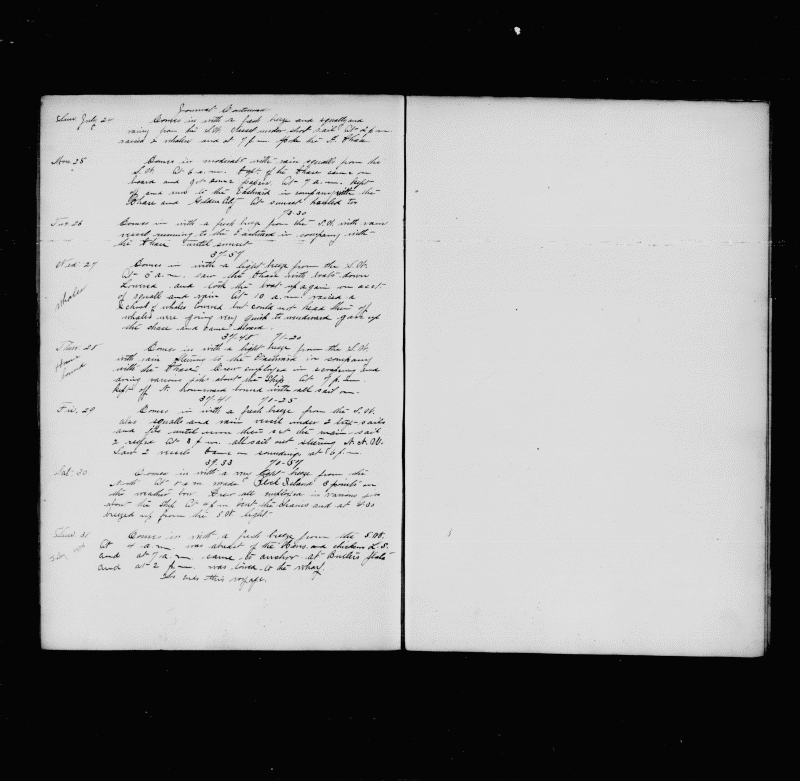 Journal Continued
Sun. July 24 Comes in with a fresh breeze and squally and
rainy from the S.W. vessel under short sail. At 2 p.m.
raised 2 whales and at 7 p.m. spoke the A. Chase
Mon. 25 Comes in moderate with rain squalls from the
S.W. At 6 a.m. Capt. of the Chase came on
board and got some papers. At 7 a.m. kept
off and run to the Eastward in company with the
Chase and Golden City. At sunset hauled to
73-30
Tues. 26 Comes in with a fresh breeze from the S.W. with rain
vessel running to the Eastward in company with
the Chase until sunset
37-57
Wed. 27 Comes in with a light breeze from the S.W.
At 5 a.m. saw the Chase with boats down
Lowered and took the boat up again on acct
of squall and rain At 10 a.m. raised a
whales School of whales lowered but could not head them off
whales were going very quick to windward gave up
the chase and came aboard.
37-48 71-20
Thurs. 28 Comes in with a light breeze from the S.W.
with rain Steering to the Eastward in company
Home bound with the Chase. Crew employed in scraping and
doing various jobs about the Ship At 7 p.m.
kept off N. homeward bound with all sail on.
37-41 70-25
Fri. 29 Comes in with a fresh breeze from the S.W.
also squalls and rain vessel under 2 top-sails
and fore until noon then set the main-sail
2 reefed At 3 p.m. all sail out steering N.N.W.
Saw 2 vessels Came on soundings at 6 p.m.
39-33 70-57
Sat. 30 Comes in with a very light breeze from the
North At 8 a.m. made Block Island 3 points on
the weather bow Crew all employed in various jobs
about the Ship At 4 p.m. bent the chains and at 4-30
breezed up from the S.W. light
Sun. 31 Comes in with a fresh breeze from the S.W.
At 4 a.m. was abreast of the Hens and chickens L.S.
and at 7 a.m. came to anchor at Butlers flats
and at 2 p.m. was towed to the wharf.
So ends this voyage.